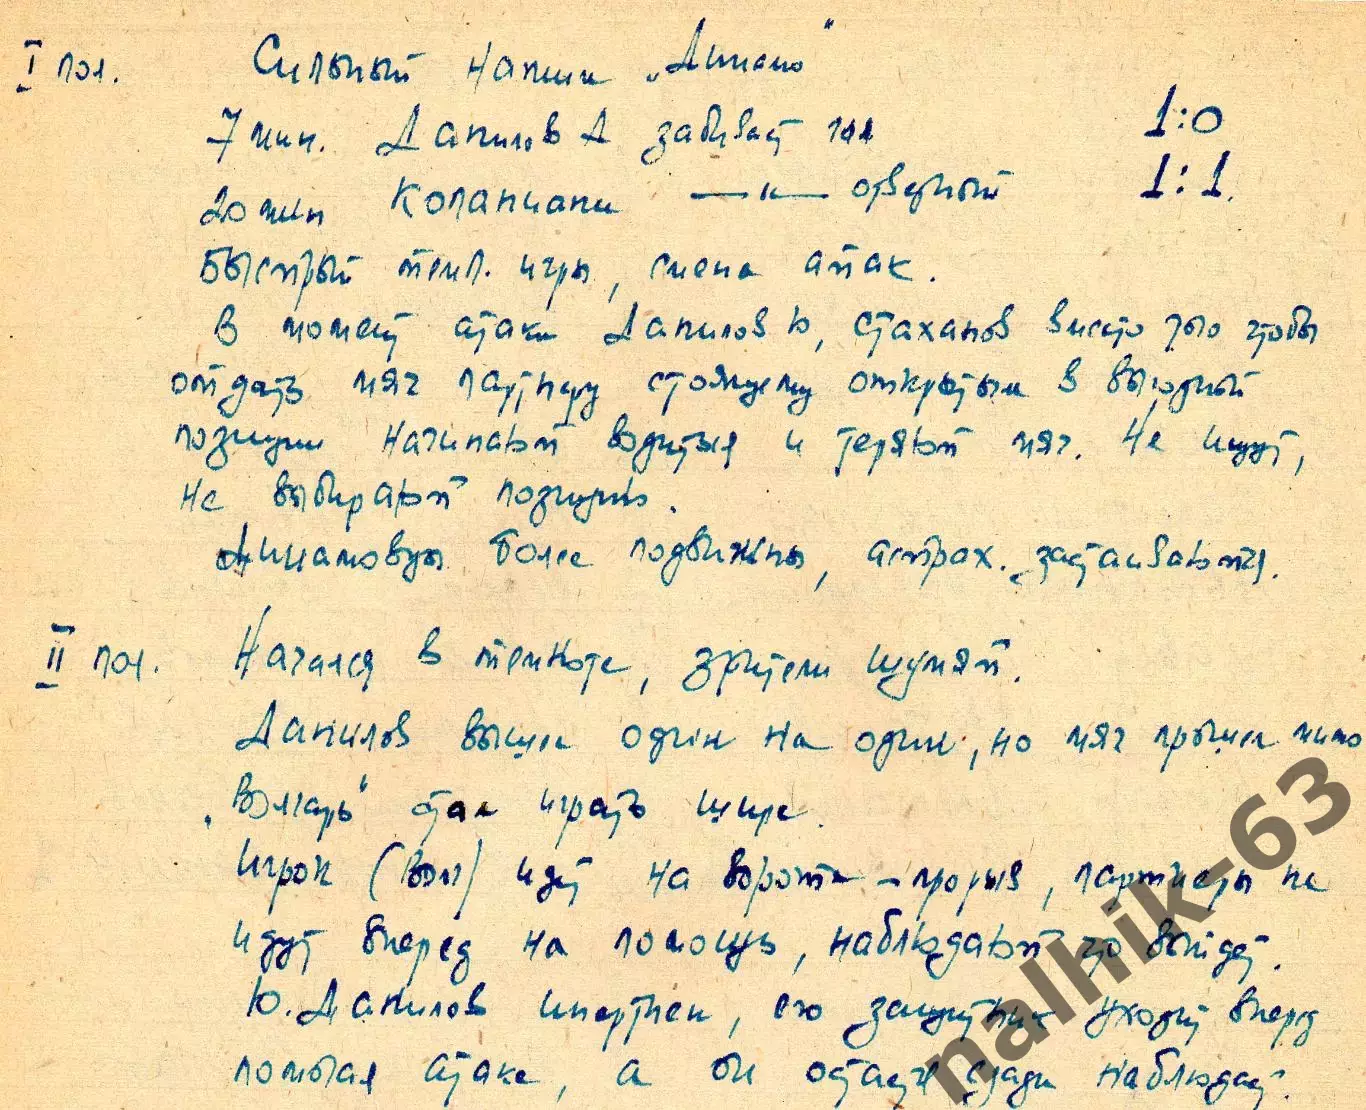 I пол. Сильный натиск „Динамо"
7 мин. Данилов А забивает гол 1:0
20 мин Колапиани —"— ответный 1:1.
Быстрый темп. игры, смена атак.
В момент атаки Данилов Ю, Стаханов вместо того чтобы
отдать мяч партнеру стоящему открытым в выгодной
позиции начинают водиться и теряют мяч. Не ищут,
не выбирают позицию.
Динамовцы более подвижны, астрах. застаиваются.
II пол. Начался в темноте, зрители шумят.
Данилов вышел один на один, но мяч прошел мимо
„Волгарь" стал играть шире.
Игрок (Вол) идет на ворота – прорыв, партнеры не
идут вперед на помощь, наблюдают что выйдет.
Ю. Данилов инертен, его защитник уходит вперед
помогая атаке, а он остается сзади наблюдает.
nalhik-63